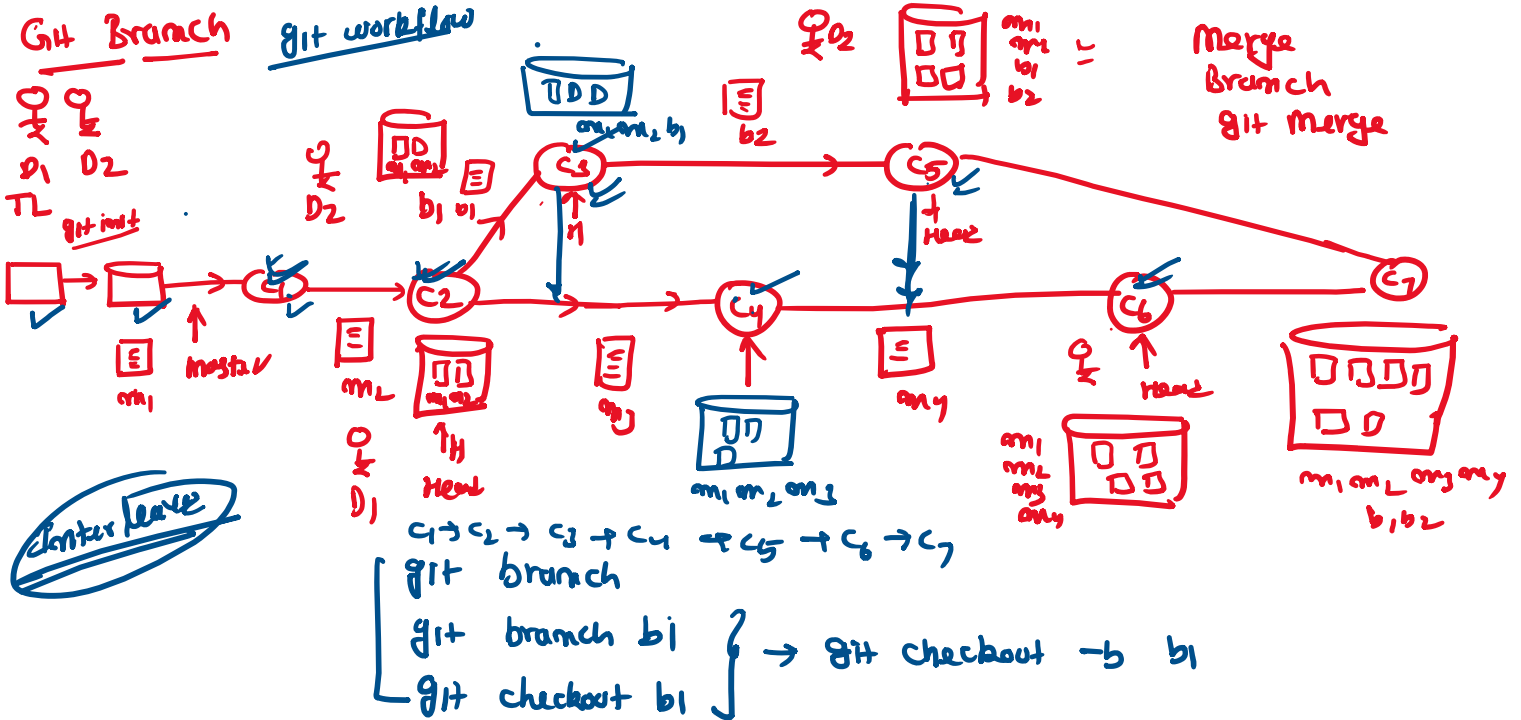 Git Branch
git workflow
D1 D2
TL
git init
master
m1
C1
m2
D1
D2
m1 m2
b1 b1
C2
m1 m2
H
Head
m1 m2 b1
C3
H
m3
C4
m1 m2 m3
b2
D2
m1
m2
b1
b2
C5
Head
m4
C6
Head
m1
m2
m3
m4
Merge
Branch
git merge
C7
m1 m2 m3 m4
b1 b2
C1 → C2 → C3 → C4 → C5 → C6 → C7
git branch
git branch b1
git checkout b1
→ git checkout -b b1